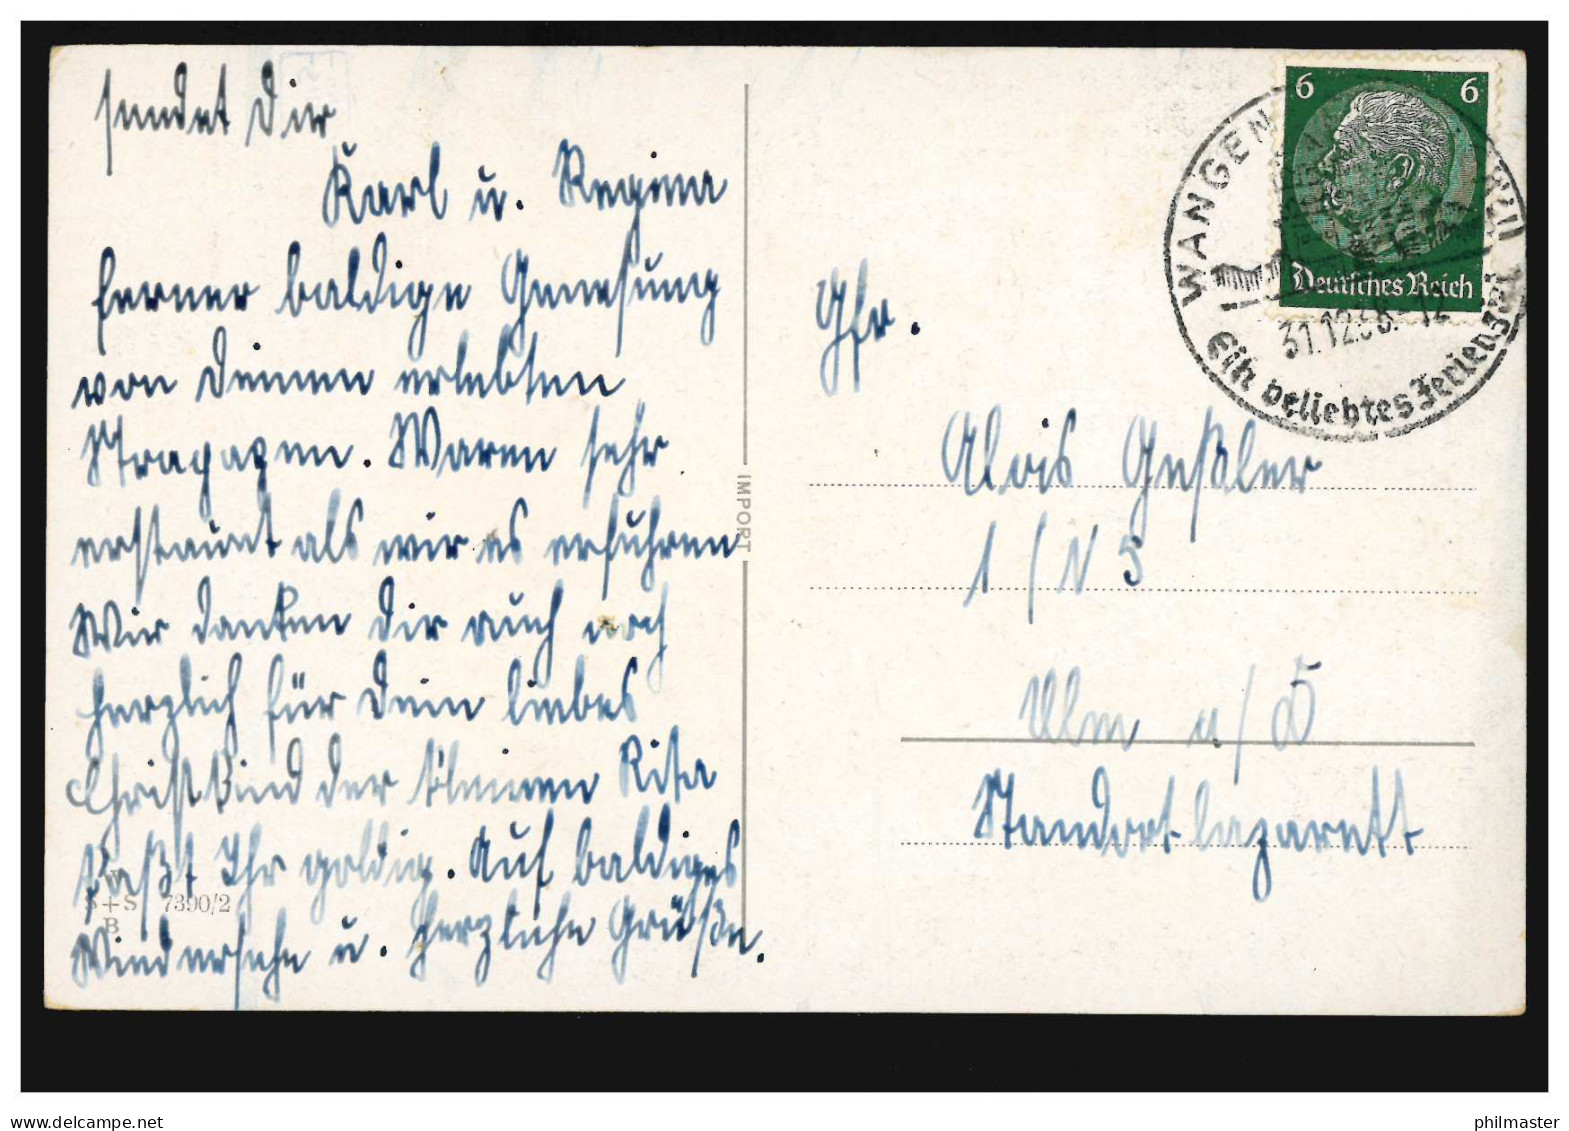 sendet Dir
Karl u. Regina
ferner baldige Genesung
von Deinen erlebten
Stragazen. Waren sehr
erstaunt als wir es erfuhren
Wir danken Dir auch noch
herzlich für Dein liebes
Christkind der kleinen Rita
paßt Ihr goldig. Auf baldiges
Wiedersehn u. herzliche Grüße.
W
S+S 7390/2
B
IMPORT
6 6
Deutsches Reich
WANGEN
31.12.38.-12
beliebtes Ferienziel
Gfr.
Alois Geßler
1/N 5
Ulm a/D
Standortlazarett
hippostcard.com
philmaster